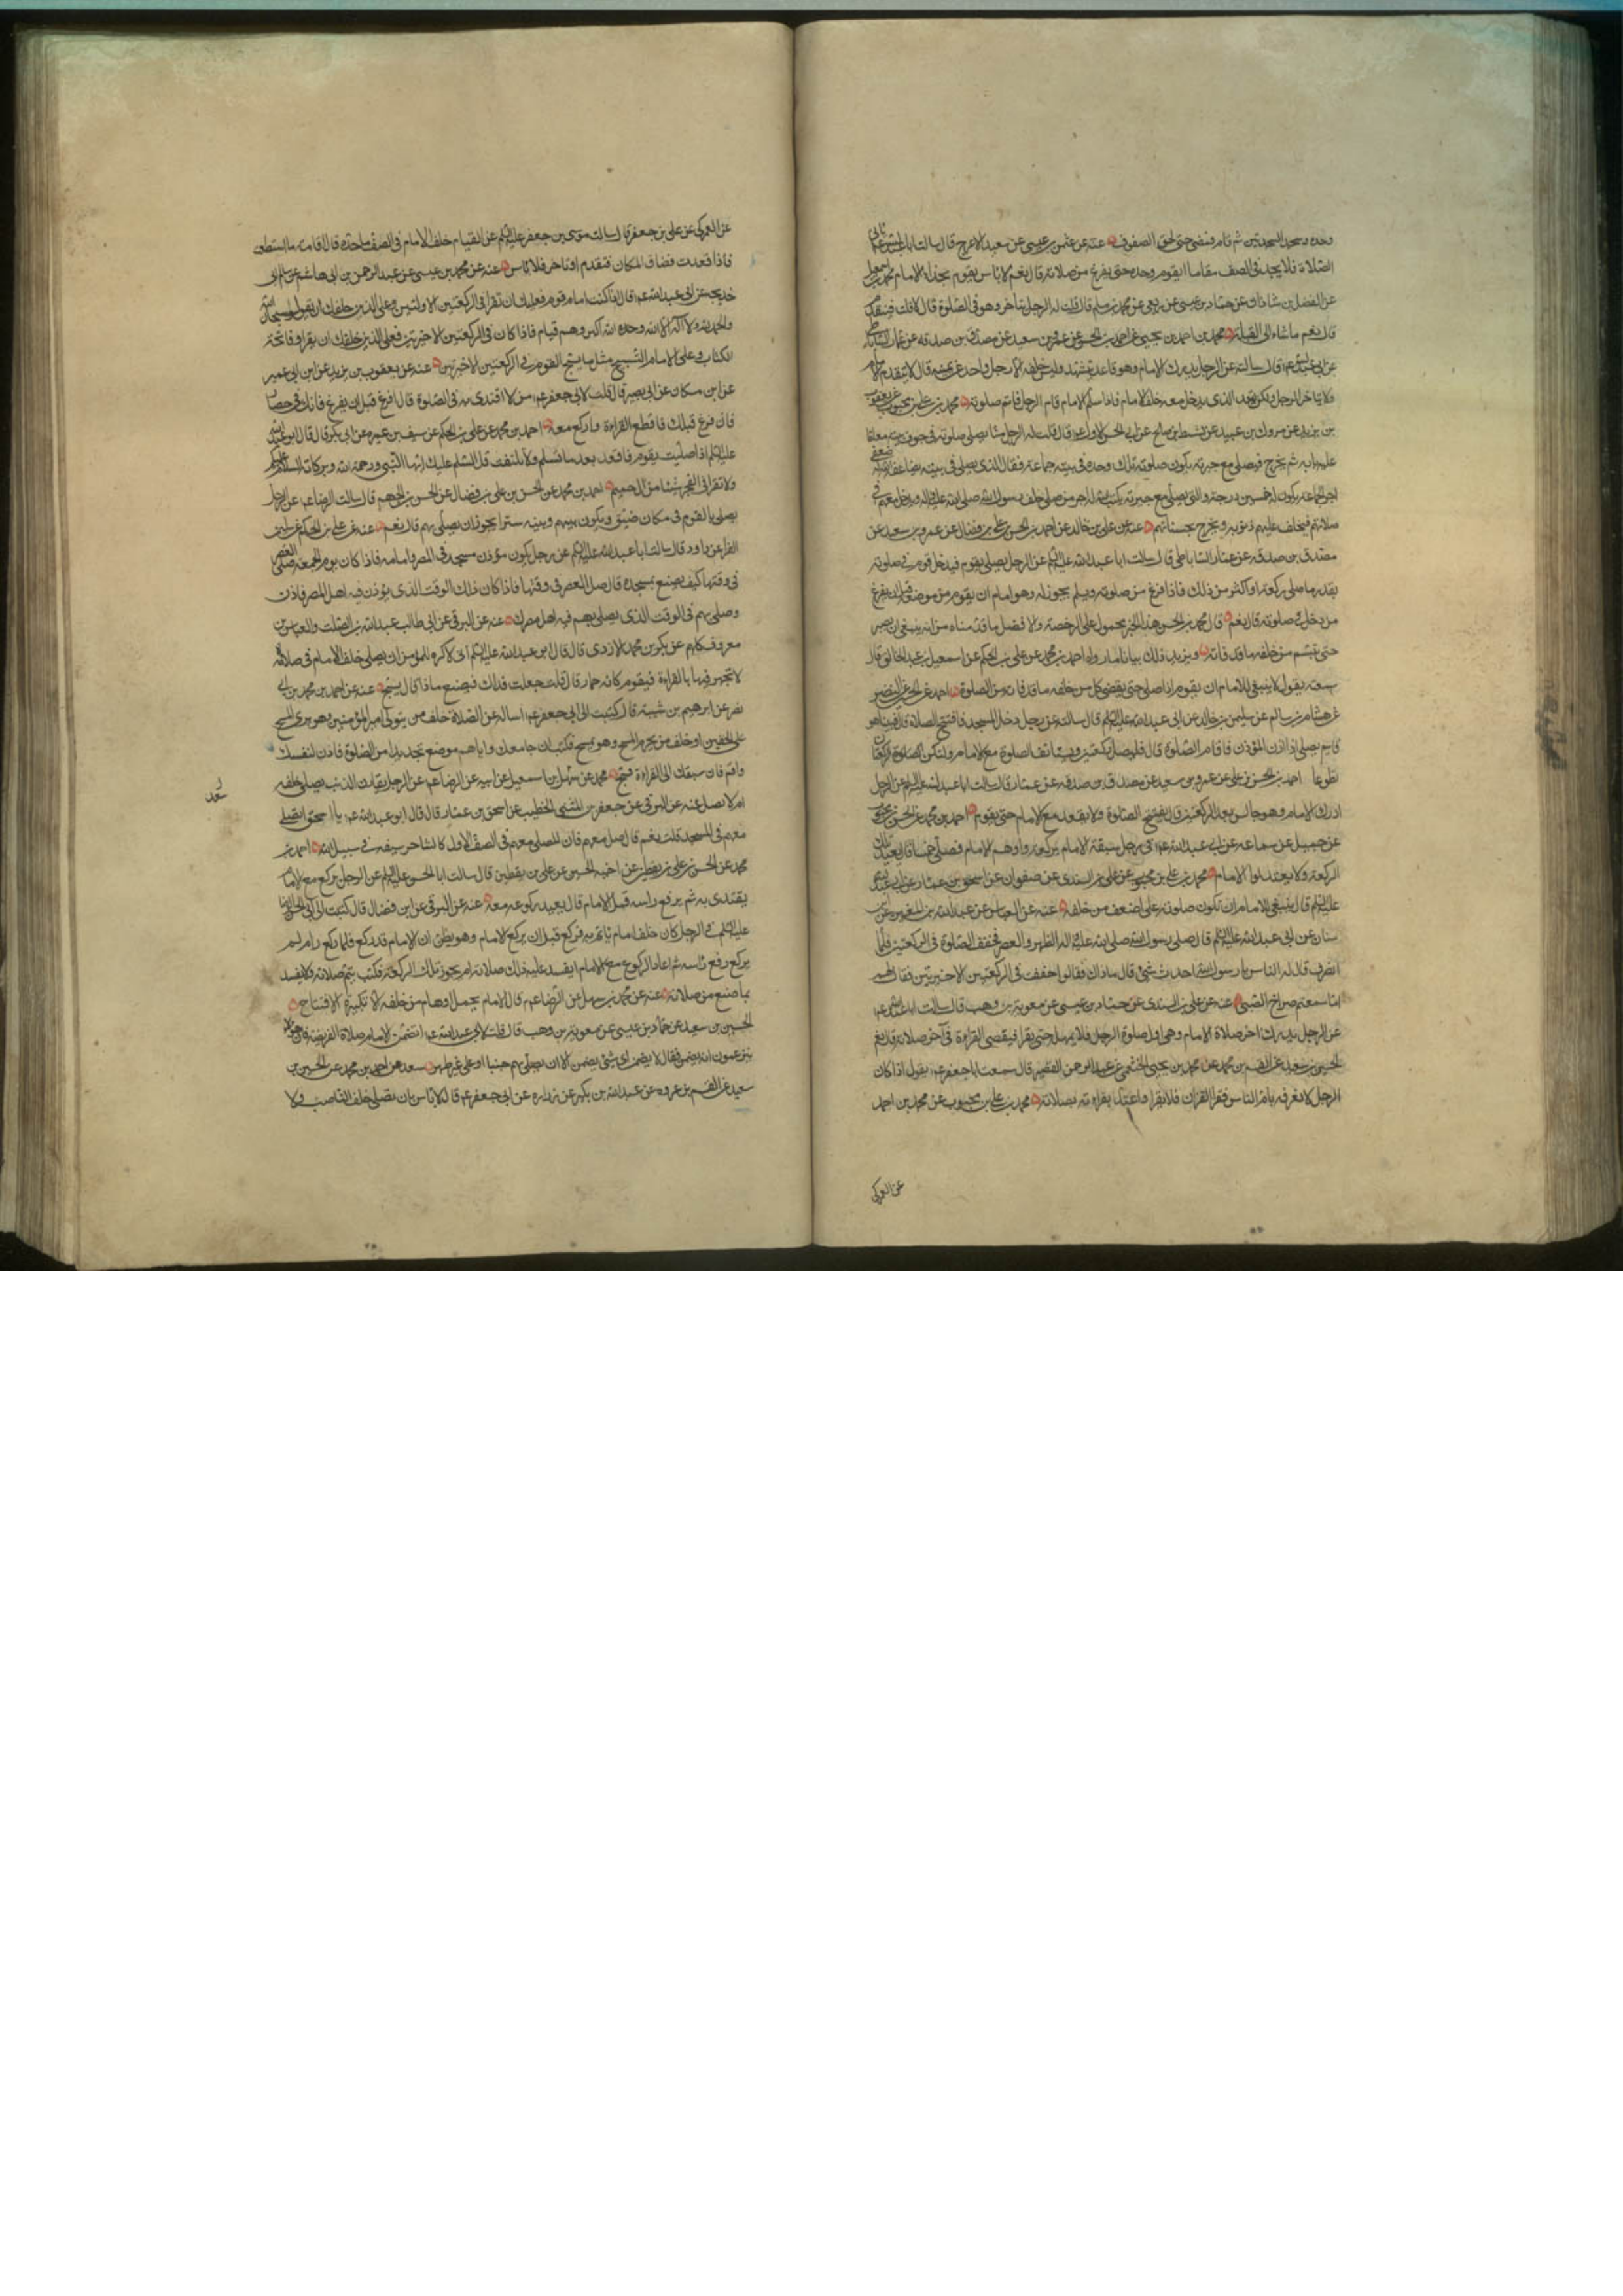 وحده وسجد السجدتين ثم قام فمضى حتى لحق الصفوف عنه عن عثمن بن عيسى عن سعيد الاعرج قال سالت ابا عبد الله ع عن الرجل ياتي
الصلاة فلا يجد في الصف مقاما ايقوم وحده حتى يفرغ من صلاته قال نعم لا باس يقوم بحذاء الامام محمد بن اسمعيل
عن الفضل بن شاذان عن حماد بن عيسى عن ربعي عن محمد بن مسلم قال قلت له الرجل يتاخر وهو في الصلوة قال لا قلت فيتقدم
قال نعم ماشاء الى القبلة محمد بن احمد بن يحيى عن احمد بن الحسن عن عمرو بن سعيد عن مصدق بن صدقه عن عمار الساباطي
عن ابي عبد الله ع قال سالته عن الرجل يدرك الامام وهو قاعد يتشهد وليس خلفه الا رجل واحد عن يمينه قال لا يتقدم الامام
ولا يتاخر الرجل ولكن يقعد الذي يدخل معه خلف الامام فاذا سلم الامام قام الرجل فاتم صلوته محمد بن علي بن محبوب عن يعقوب
بن يزيد عن مروك بن عبيد عن نشيط بن صالح عن ابي الحسن الاول ع قال قلت له الرجل منا يصلي صلوته في جوف بيته مغلقا
عليه بابه ثم يخرج فيصلي مع جيرته يكون صلوته تلك وحده في بيته جماعة فقال الذي يصلي في بيته يضاعف الله له ضعفي
اجر الجماعة يكون له خمسين درجة والذي يصلي مع جيرته يكتب له اجر من صلى خلف رسول الله صلى الله عليه واله ويدخل معهم في
صلاتهم فيخلف عليهم ذنوبه ويخرج بحسناتهم عنه عن علي بن خالد عن احمد بن الحسن بن علي بن فضال عن عمرو بن سعيد عن
مصدق بن صدقه عن عمار الساباطي قال سالت ابا عبد الله عليه السلم عن الرجل يصلي بقوم فيدخل قوم في صلوته
بقدر ما صلى ركعة او اكثر من ذلك فاذا فرغ من صلوته وسلم يجوز له وهو امام ان يقوم من موضعه قبل ان يفرغ
من دخل في صلوته قال نعم قال محمد بن الحسن هذا الخبر محمول على الرخصة والافضل ما قدمناه من انه ينبغي ان يصبر
حتى يتم من خلفه ما قد فاته ويزيد ذلك بيانا ما رواه احمد بن محمد عن علي بن الحكم عن اسمعيل بن عبد الخالق قال
سمعته يقول لا ينبغي للامام ان يقوم اذا صلى حتى يقضي كل من خلفه ما قد فاته من الصلوة احمد عن الحسين عن النضر
عن هشام بن سالم عن سليمن بن خالد عن ابي عبد الله عليه السلم قال سالته عن رجل دخل المسجد فافتتح الصلاة قال فبينا هو
قايم يصلي اذا اذن المؤذن فاقام الصلوة قال فليصل ركعتين ويستانف الصلوة مع الامام ولتكن الصلوة الركعتان
تطوعا احمد بن الحسن بن علي عن عمرو بن سعيد عن مصدق بن صدقه عن عمار قال سالت ابا عبد الله عليه السلم عن الرجل
ادرك الامام وهو جالس بعد الركعتين قال يفتتح الصلوة ولا يقعد مع الامام حتى يقوم احمد بن محمد عن الحسن بن محبوب
عن جميل عن سماعه عن ابي عبد الله ع في رجل سبقه الامام بركعة واوهم الامام فصلى خمسا قال يعيد تلك
الركعة ولا يعتد بوهم الامام محمد بن علي بن محبوب عن علي بن السندي عن صفوان عن اسحق بن عمار عن ابي عبد الله
عليه السلم قال ينبغي للامام ان تكون صلوته على اضعف من خلفه عنه عن العباس عن عبد الله بن المغيرة عن ابن
سنان عن ابي عبد الله عليه السلم قال صلى رسول الله صلى الله عليه واله الظهر والعصر فخفف الصلوة في الركعتين فلما
انصرف قال له الناس يا رسول الله احدث شئ قال ما ذاك فقالوا خففت في الركعتين الاخيرتين فقال لهم
اما سمعتم صراخ الصبي عنه عن علي بن السندي عن حماد بن عيسى عن معوية بن وهب قال سالت ابا عبد الله ع
عن الرجل يدرك اخر صلاة الامام وهي اول صلوة الرجل فلا يمهل حتى يقرا فيقضي القراءة في آخر صلاته قال نعم
الحسين بن سعيد عن القسم بن محمد عن محمد بن يحيى الخثعمي عن عبد الرحمن القصير قال سمعت ابا جعفر ع يقول اذا كان
الرجل لا تعرفه يام الناس فقرا القران فلا تقرا واعتد بقراءته بصلاته محمد بن علي بن محبوب عن محمد بن احمد
عن العمركي
عن العمركي عن علي بن جعفر قال سالت موسى بن جعفر عليه السلم عن القيام خلف الامام في الصف ما حده قال اقامته ما استطعت
فاذا قعدت فضاق المكان فتقدم او تاخر فلا باس عنه عن محمد بن عيسى عن عبد الرحمن بن ابي هاشم عن سالم ابي
خديجه عن ابي عبد الله ع قال اذا كنت امام قوم فعليك ان تقرا في الركعتين الاولتين وعلى الذين خلفك ان يقولوا سبحان الله
والحمد لله ولا اله الا الله وحده الله اكبر وهم قيام فاذا كان في الركعتين الاخيرتين فعلى الذين خلفك ان يقراوا فاتحة
الكتاب وعلى الامام التسبيح مثل ما يسبح القوم في الركعتين الاخيرتين عنه عن يعقوب بن يزيد عن ابن ابي عمير
عن ابن مسكان عن ابي بصير قال قلت لابي جعفر ع من لا اقتدي به في الصلوة قال افرغ قبل ان يفرغ فانك في حصار
فان فرغ قبلك فاقطع القراءة واركع معه احمد بن محمد عن علي بن الحكم عن سيف بن عميره عن ابي بكر قال قال ابو عبد الله
عليه السلم اذا صليت بقوم فاقعد بعد ما تسلم ولا تلتفت قل السلم عليك ايها النبي ورحمة الله وبركاته السلام عليكم
ولا تقرا في الفجر شيئا من ال حميم احمد بن محمد عن الحسن بن علي بن فضال عن الحسن بن الجهم قال سالت الرضا ع عن الرجل
يصلي بالقوم في مكان ضيق ويكون بينهم وبينه ستر ايجوز ان يصلي بهم قال نعم عنه عن علي بن الحكم عن ابن
الفرا عن داود قال سالت ابا عبد الله عليه السلم عن رجل يكون مؤذن مسجد في المصر وامامه فاذا كان يوم الجمعه صلى العصر
في وقتها كيف يصنع بمسجده قال صل العصر في وقتها فاذا كان ذلك الوقت الذي يؤذن فيه اهل المصر فاذن
وصلي بهم في الوقت الذي يصلي بهم فيه اهل مصرك عنه عن البرقي عن ابي طالب عبد الله بن الصلت والعباس بن
معروف كلهم عن بكر بن محمد الازدي قال قال ابو عبد الله عليه السلم اني لاكره للمؤمن ان يصلي خلف الامام في صلاة
لا تجهر فيها بالقراءة فيقوم كانه حمار قال قلت جعلت فداك فيصنع ماذا قال يسبح عنه عن احمد بن محمد بن ابي
نصر عن ابرهيم بن شيبة قال كتبت الى ابي جعفر ع اساله عن الصلاة خلف من يتولى امير المؤمنين وهو يرى المسح
على الخفين او خلف من يحرم المسح وهو يمسح فكتب ان جامعك واياهم موضع تجد بدا من الصلوة فاذن لنفسك
واقم فان سبقك الى القراءة فسبح محمد عن سهل بن اسمعيل عن ابيه عن الرضا ع عن الرجل يقارف الذنب يصلى خلفه
ام لا تصل عنه عن البرقي عن جعفر بن المثنى الخطيب عن اسحق بن عمار قال قال ابو عبد الله ع يا اسحق اتصلي
معهم في المسجد قلت نعم قال صل معهم فان المصلي معهم في الصف الاول كالشاهر سيفه في سبيل الله احمد بن
محمد عن الحسن بن علي بن يقطين عن اخيه الحسين عن علي بن يقطين قال سالت ابا الحسن عليه السلم عن الرجل يركع مع الامام
يقتدي به ثم يرفع راسه قبل الامام قال يعيد ركوعه معه عنه عن البرقي عن ابن فضال قال كتبت الى ابي الحسن الرضا
عليه السلم في الرجل كان خلف امام ياتم به فركع قبل ان يركع الامام وهو يظن ان الامام قد ركع فلما ركع راه لم
يركع رفع راسه ثم اعاد الركوع مع الامام ايفسد عليه ذلك صلاته ام يجوز تلك الركعة فكتب يتم صلاته ولا يفسد
بما صنع من صلاته عنه عن محمد بن سهل عن الرضا ع قال الامام يحمل اوهام من خلفه الا تكبيرة الافتتاح
الحسين بن سعيد عن حماد بن عيسى عن معوية بن وهب قال قلت لابي عبد الله ع ايضمن الامام صلاة الفريضة فان هؤلاء
يزعمون انه يضمن فقال لا يضمن اي شئ يضمن الا ان يصلي بهم جنبا او على غير طهر سعد عن احمد بن محمد عن الحسين بن
سعيد عن القسم بن عروه عن عبد الله بن بكير عن زراره عن ابي جعفر ع قال لا باس بان تصلي خلف الناصب ولا
سعد